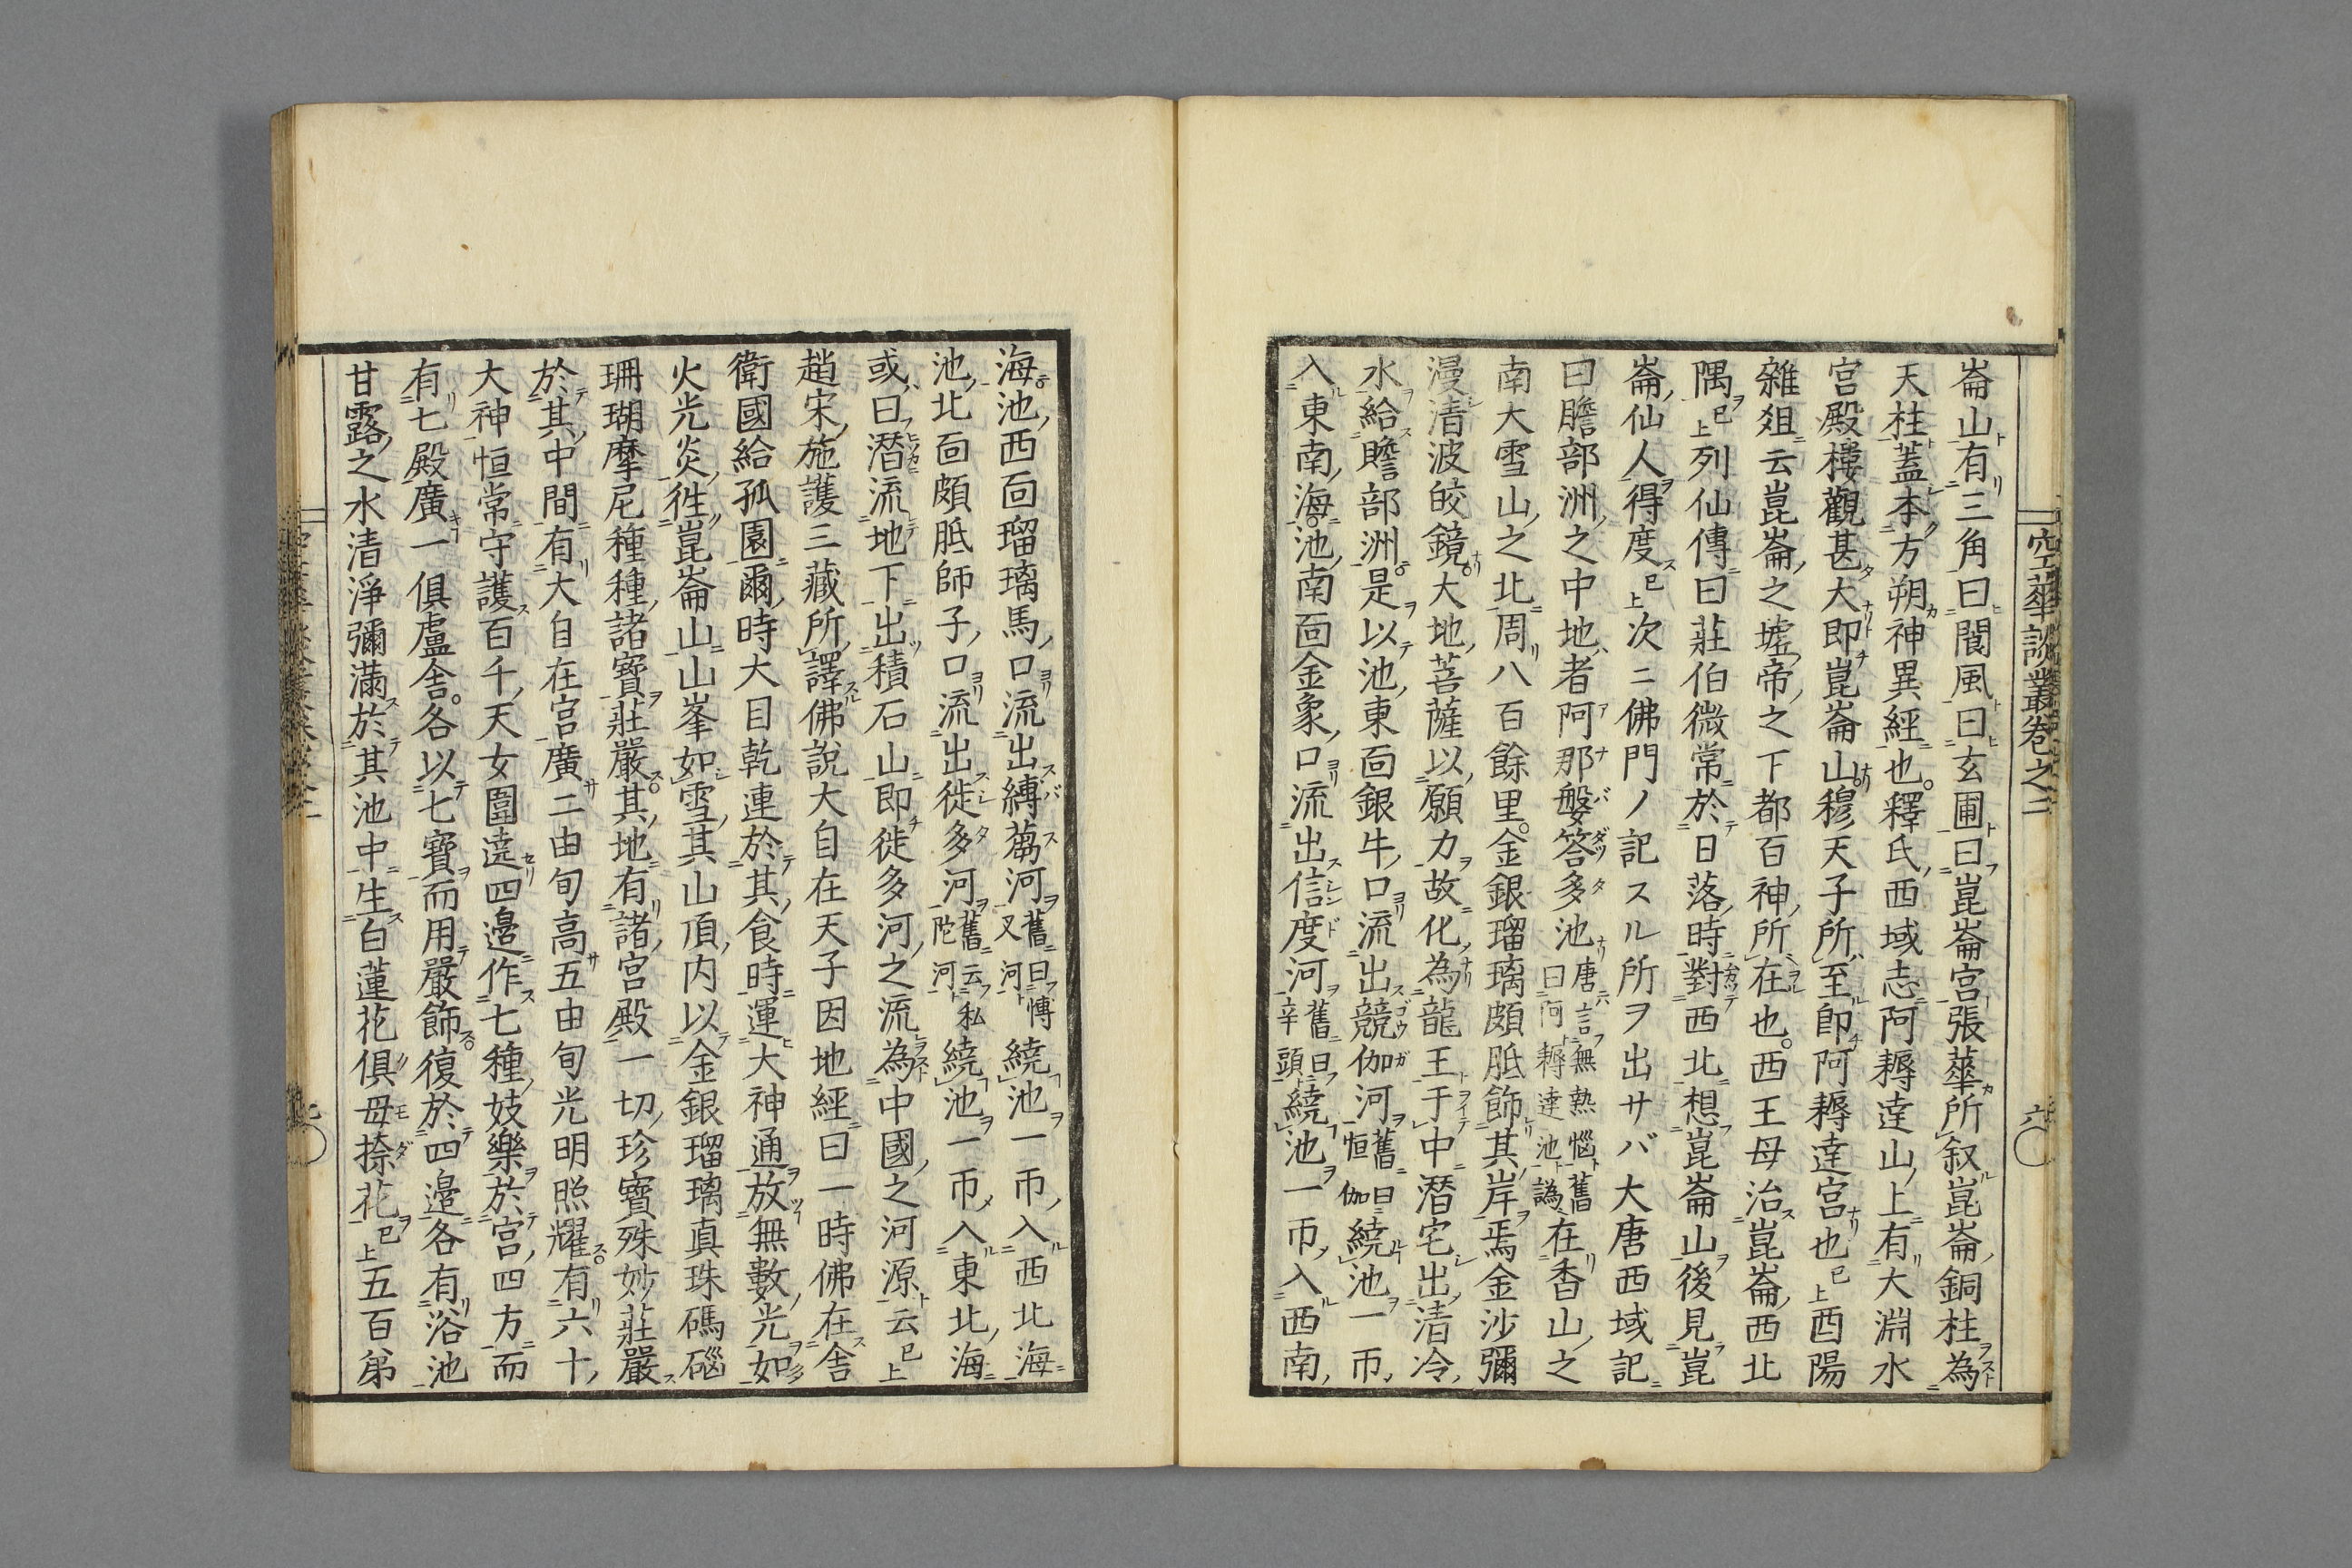 空華談叢卷之三
六
崙山有三角曰閬風曰玄圃曰崑崙宮張華所叙崑崙銅柱為
天柱蓋本方朔神異經也釋氏西域志阿耨達山上有大淵水
宮殿樓觀甚大即崑崙山穆天子所至即阿耨達宮也已上酉陽
雜俎云崑崙之墟帝之下都百神所在也西王母治崑崙西北
隅已上列仙傳曰莊伯微常於日落時對西北想崑崙山後見崑
崙仙人得度已上次ニ佛門ノ記スル所ヲ出サバ大唐西域記
曰贍部洲之中地者阿那婆答多池唐言無熱惱舊曰阿耨達池譌在香山之
南大雪山之北周八百餘里金銀瑠璃頗胝飾其岸焉金沙彌
漫清波皎鏡大地菩薩以願力故化為龍王于中潜宅出清冷
水給贍部洲是以池東面銀牛口流出殑伽河舊曰恒伽繞池一帀
入東南海池南面金象口流出信度河舊曰辛頭繞池一帀入西南
海池西面瑠璃馬口流出縛蒭河舊曰博叉河繞池一帀入西北海
池北面頗胝師子口流出徙多河舊云私陀河繞池一帀入東北海
或曰潜流地下出積石山即徙多河之流為中國之河源云已上
趙宋施護三藏所譯佛說大自在天子因地經曰一時佛在舍
衛國給孤園爾時大目乾連於其食時運大神通放無數光如
火光炎徃崑崙山山峯如雪其山頂内以金銀瑠璃真珠碼碯
珊瑚摩尼種種諸寶莊嚴其地有諸宮殿一切珍寶殊妙莊嚴
於其中間有大自在宮廣二由旬高五由旬光明照耀有六十
大神恒常守護百千天女圍遶四邉作七種妓樂於宮四方而
有七殿廣一俱盧舍各以七寶而用嚴飾復於四邉各有浴池
甘露之水清淨彌滿於其池中生白蓮花俱母捺花已上五百弟